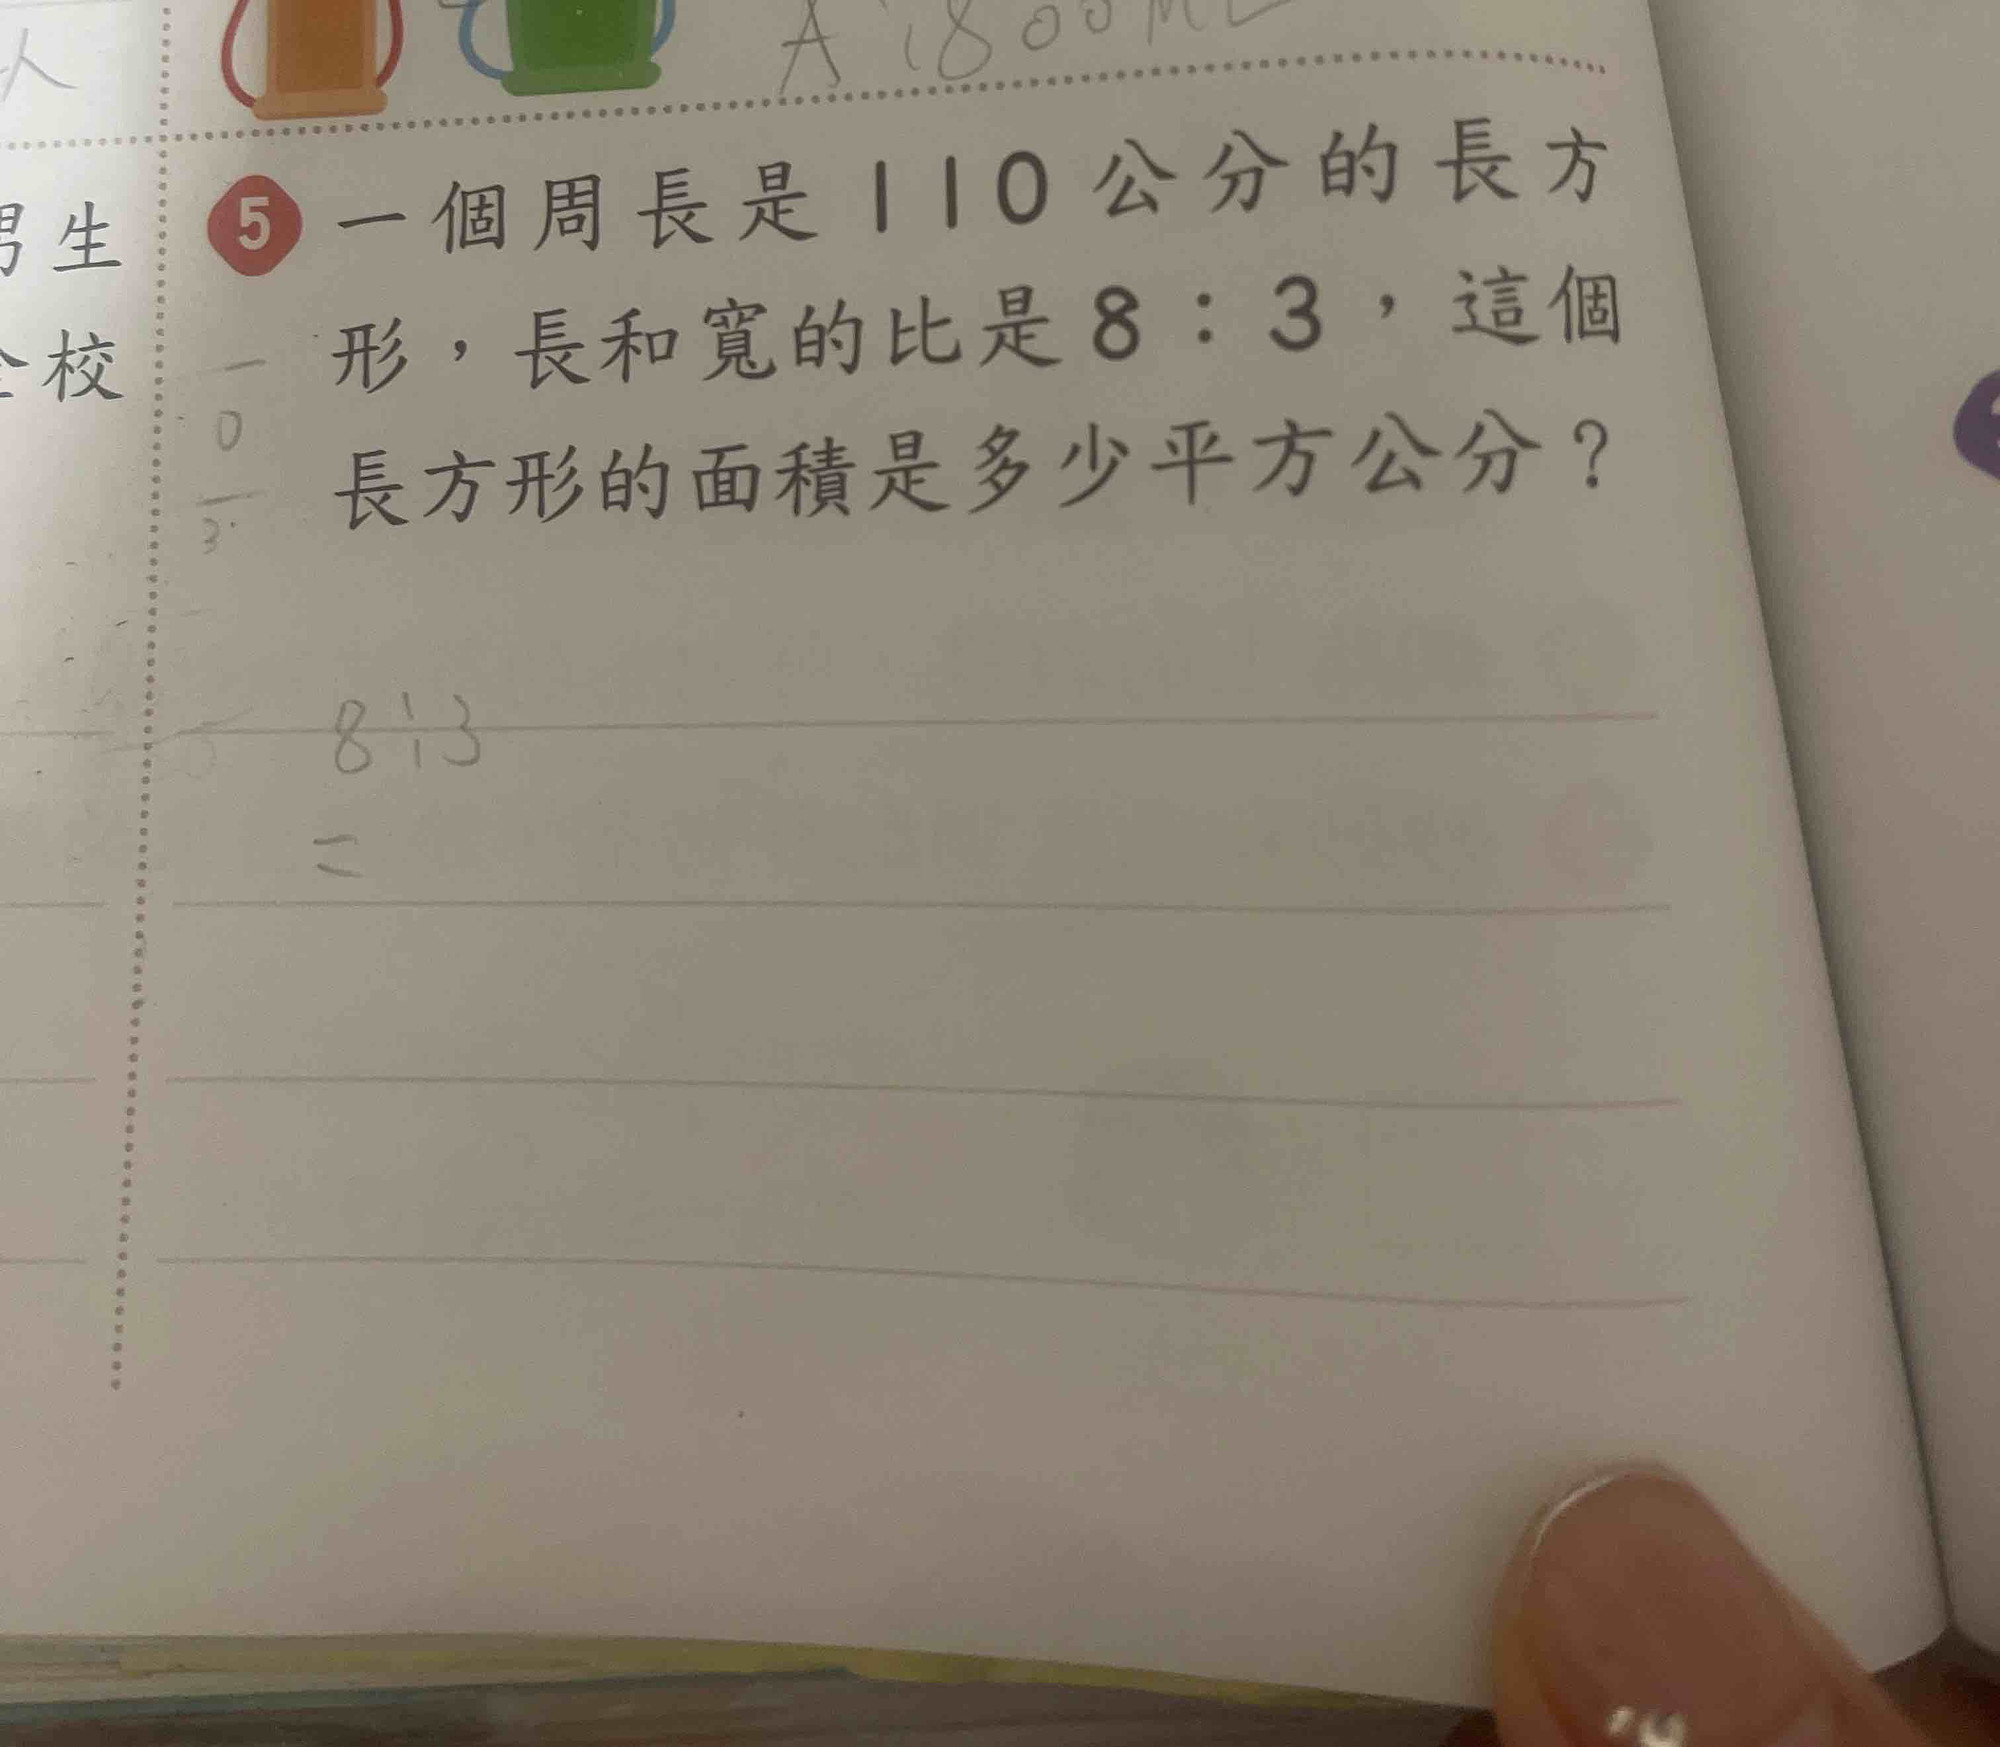 人
A:1800ML
男生
校
5 一個周長是110公分的長方
形，長和寬的比是8：3，這個
長方形的面積是多少平方公分？
0
3
8÷3
=